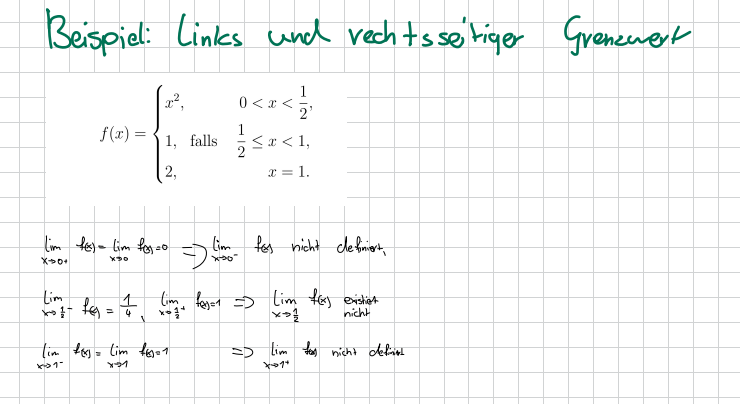 Beispiel: Links und rechtsseitiger Grenzwert
f(x) = { x², 0 < x < 1/2,
1, falls 1/2 ≤ x < 1,
2, x = 1.
lim x→0+ f(x) = lim x→0 f(x) = 0 => lim x→0- f(x) nicht definiert,
lim x→1/2- f(x) = 1/4, lim x→1/2+ f(x) = 1 => lim x→1/2 f(x) existiert nicht
lim x→1- f(x) = lim x→1 f(x) = 1 => lim x→1+ f(x) nicht definiert